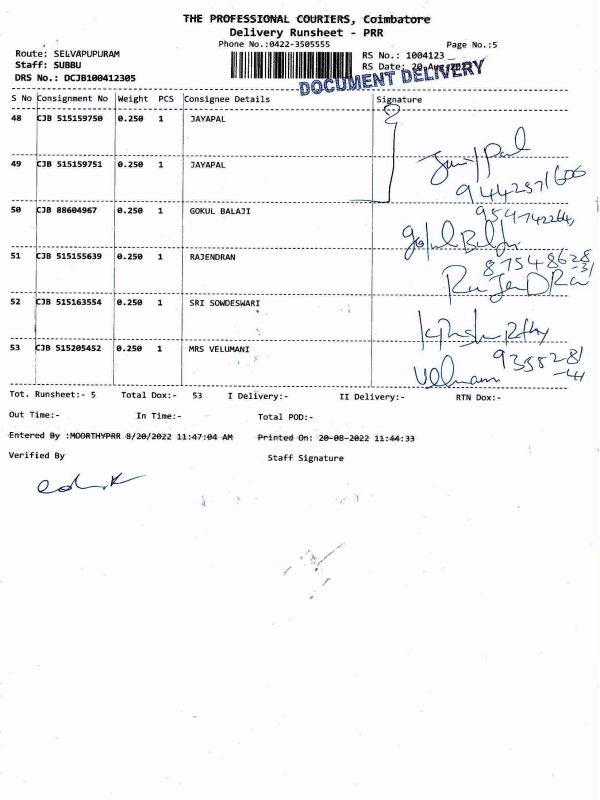 THE PROFESSIONAL COURIERS, Coimbatore
Delivery Runsheet - PRR
Phone No.:0422-3505555 Page No.:5
Route: SELVAPUPURAM RS No.: 1004123
Staff: SUBBU RS Date: 20-Aug-2022
DRS No.: DCJB100412305
DOCUMENT DELIVERY
S No Consignment No Weight PCS Consignee Details Signature
48 CJB 515159750 0.250 1 JAYAPAL
49 CJB 515159751 0.250 1 JAYAPAL
9442571606
50 CJB 88604967 0.250 1 GOKUL BALAJI
Gokul Balaji
51 CJB 515155639 0.250 1 RAJENDRAN
87548628
-31
RaJenDRan
52 CJB 515163554 0.250 1 SRI SOWDESWARI
53 CJB 515205452 0.250 1 MRS VELUMANI
935528
Tot. Runsheet:- 5 Total Dox:- 53 I Delivery:- II Delivery:- RTN Dox:-
Out Time:- In Time:- Total POD:-
Entered By :MOORTHYPRR 8/20/2022 11:47:04 AM Printed On: 20-08-2022 11:44:33
Verified By Staff Signature